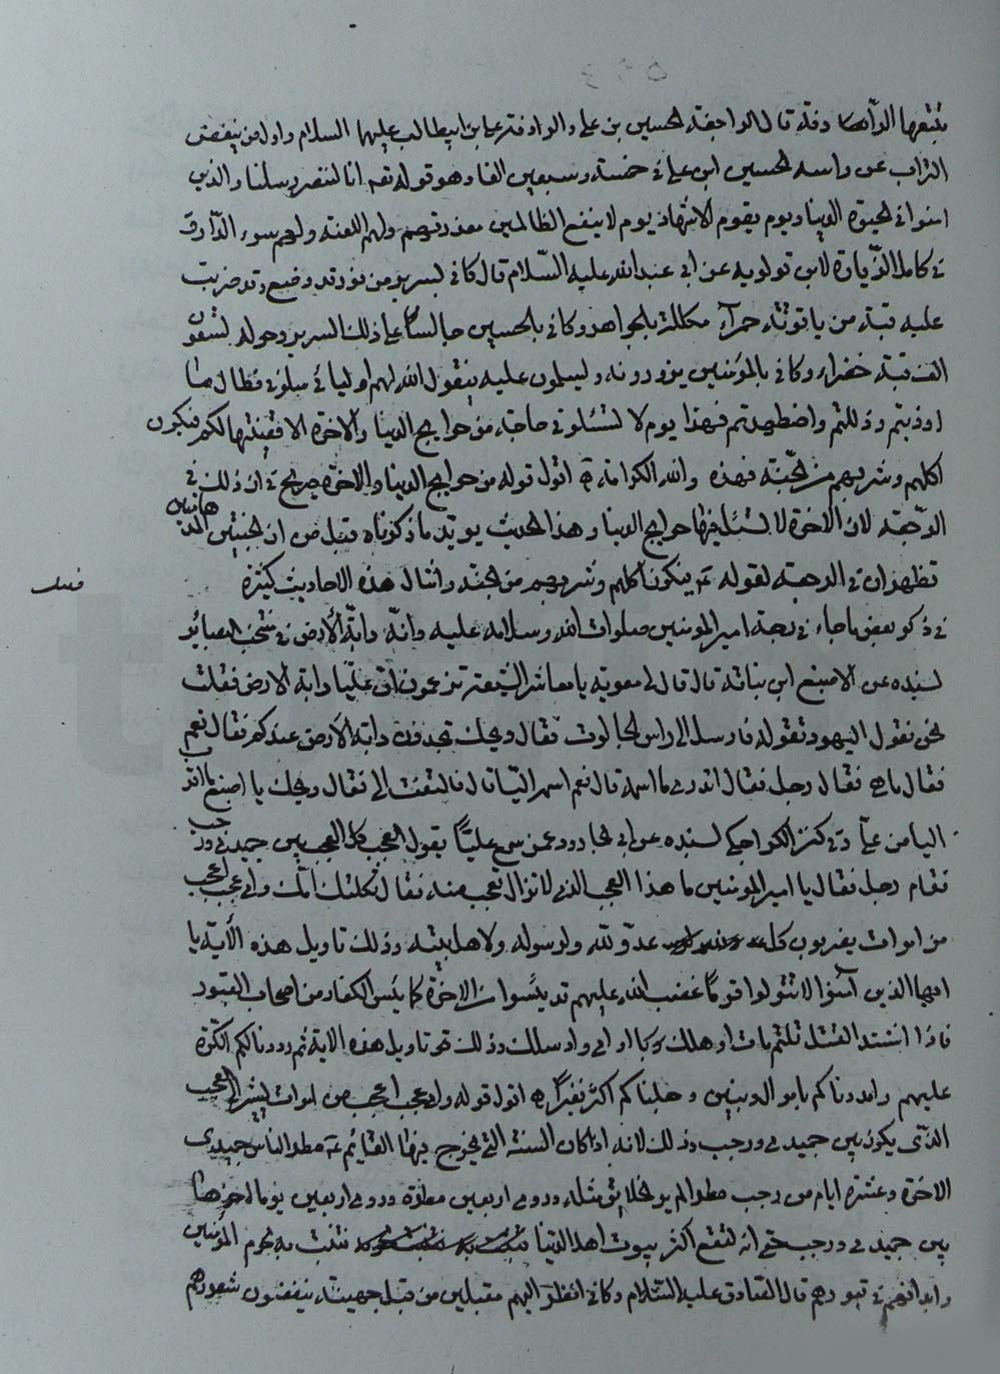 تتبعها الرادفة قال الراجفة الحسين بن علي والرادفة علي بن ابيطالب عليهما السلام واول من ينفض
التراب عن راسه الحسين ابن علي في خمسة وسبعين الفا وهو قوله تعه انا لننصر رسلنا والذين
امنوا في الحيوة الدنيا ويوم يقوم الاشهاد يوم لا ينفع الظالمين معذرتهم ولهم اللعنة ولهم سوء الدار وق
في كامل الزيارة لابن قولويه عن ابي عبدالله عليه السلام قال كاني بسرير من نور قد وضع وقد ضربت
عليه قبة من ياقوتة حمرآء مكللة بالجواهر وكاني بالحسين جالسا على ذلك السرير وحوله تسعون
الف قبة خضراء وكاني بالمؤمنين يزورونه ويسلمون عليه فيقول الله لهم اوليائي سلوني فطال ما
اوذيتم وذللتم واضطهدتم فهذا يوم لا تسئلوني حاجة من حوائج الدنيا والاخرة الا قضيتها لكم فيكون
اكلهم وشربهم من الجنة فهذه والله الكرامة ه اقول قوله من حوائج الدنيا والاخرة صريح في ان ذلك في
الرجعة لان الاخرة لا تسئل فيها حوائج الدنيا وهذا الحديث يؤيد ما ذكرناه قبل من ان الجنتين المدهامتين
تظهران في الرجعة لقوله ع فيكون اكلهم وشربهم من الجنة وامثال هذه الاحاديث كثيرة
فصل
في ذكر بعض ما جاء في رجعة امير المومنين صلوات الله وسلامه عليه وانه دابة الارض في منتخب البصائر
بسنده عن الاصبغ ابن نباتة قال قال لي معوية يا معاشر الشيعة تزعمون ان عليا دابة الارض فقلت
نحن نقول اليهود تقوله فارسل الى راس الجالوت فقال ويحك تجدون دابة الارض عندكم فقال نعم
فقال ما هي فقال رجل فقال اتدري ما اسمه قال نعم اسمه اليا قال فالتفت الي فقال ويحك يا اصبغ ما اقرب
اليا من عليا وفي كنز الكراجكي بسنده عن ابي الجارود عمن سمع عليا يقول العجب كل العجب بين جميدي ورجب
فقام رجل فقال يا امير المومنين ما هذا العجب الذي لا تزال تعجب منه فقال ثكلتك امك واي عجب اعجب
من اموات يضربون كل عدو لله ولرسوله ولاهل بيته وذلك تاويل هذه الأية يا
ايها الذين آمنوا لا تتولوا قوما غضب الله عليهم قد يئسوا من الاخرة كما يئس الكفار من اصحاب القبور
فاذا اشتد القتل قلتم مات او هلك واي واد سلك وذلك تاويل هذه الاية ثم رددنا لكم الكرة
عليهم وامددناكم باموال وبنين وجعلناكم اكثر نفيرا ه اقول قوله واي عجب اعجب من اموات يشير الى العجب
الذي يكون بين جميدى ورجب وذلك لانه اذا كان السنة التي يخرج فيها القائم عه مطر الناس جميدي
الاخرة وعشرة ايام من رجب مطرا لم ير الخلائق مثله وروي اربعين مطرة وروي اربعين يوما اخرها
بين جميدي ورجب حتى انه لتقع اكثر بيوت اهل الدنيا فتنبت به لحوم المؤمنين
وابدانهم في قبورهم قال الصادق عليه السلام وكاني انظر اليهم مقبلين من قبل جهينة ينفضون شعورهم